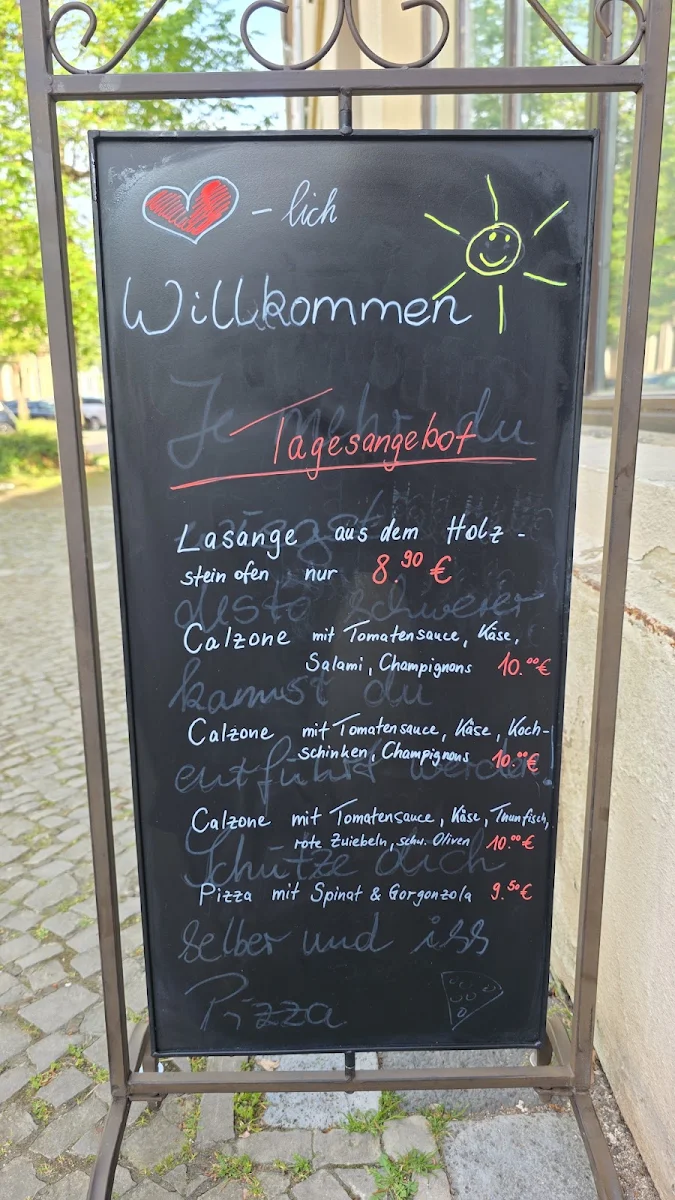 - lich
Willkommen
Je mehr du
Tagesangebot
wiegst
Lasange aus dem Holz -
stein ofen nur 8.90 €
desto schwerer
Calzone mit Tomatensauce, Käse,
Salami, Champignons 10.00 €
kannst du
Calzone mit Tomatensauce, Käse, Koch-
schinken, Champignons 10.00 €
entführt werden!
Calzone mit Tomatensauce, Käse, Tnunfisch,
rote Zwiebeln, schw. Oliven 10.00 €
Schütze dich
Pizza mit Spinat & Gorgonzola 9.50 €
selber und iss
Pizza